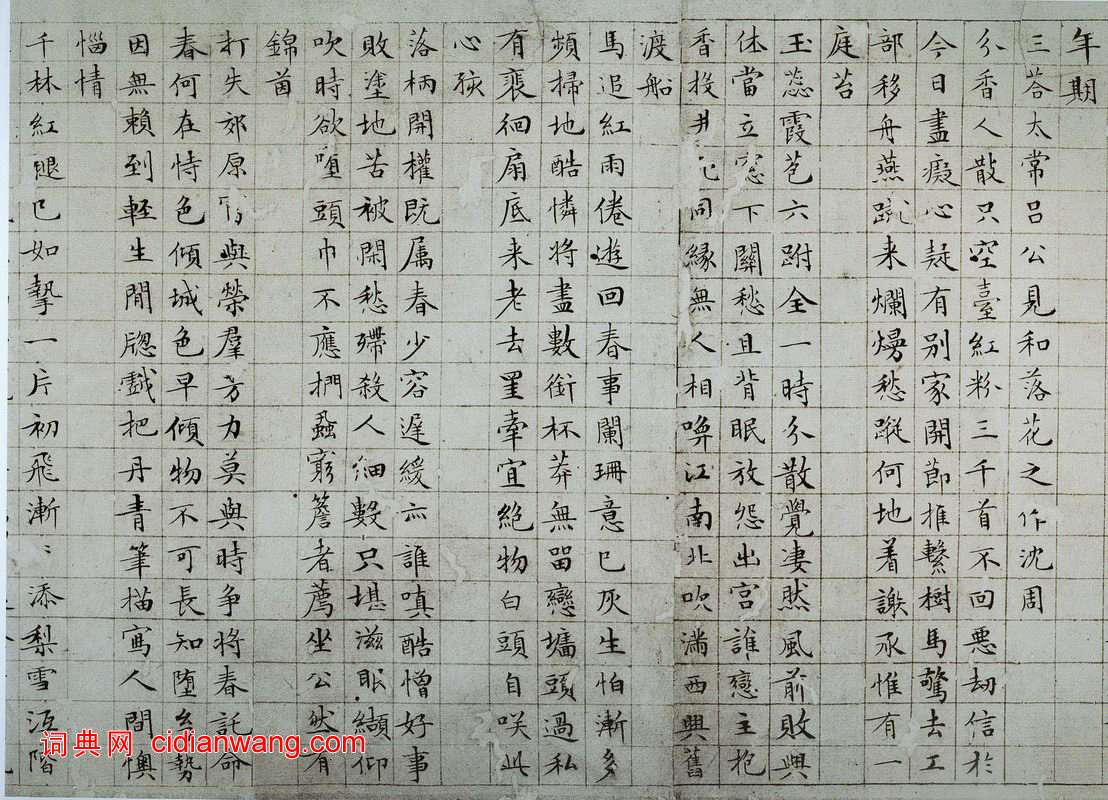 年期
三荅太常吕公見和落花之作沈周
分香人散只空臺紅粉三千首不回悪劫信於
今日盡癡心疑有别家開節推繫樹馬驚去工
部移舟燕蹴来爛熳愁蹤何地着謝承惟有一
庭苔
玉蕊霞苞六跗全一時分散覺凄然風前敗興
休當立窓下關愁且背眠放怨出宫誰戀主抱
香投井死同縁無人相喚江南北吹滿西興舊
渡船
馬追紅雨倦遊回春事闌珊意已灰生怕漸多
頻掃地酷憐将盡數銜杯莽無留戀墻頭過私
有褱徊扇底来老去罣牽宜絶物白頭自咲此
心孩
落柄開權既属春少容遅緩亦誰嗔酷憎好事
敗塗地苦被閑愁殢殺人細數只堪滋眼纈仰
吹時欲堕頭巾不應捫蝨窮簷者薦坐公然有
錦茵
打失郊原富與榮羣芳力莫與時争将春託命
春何在恃色傾城色早傾物不可長知堕幻勢
因無賴到輕生閒牕戲把丹青筆描寫人間懊
惱情
千林紅褪已如摯一片初飛漸〻添梨雪沍階
词典网 cidianwang.com